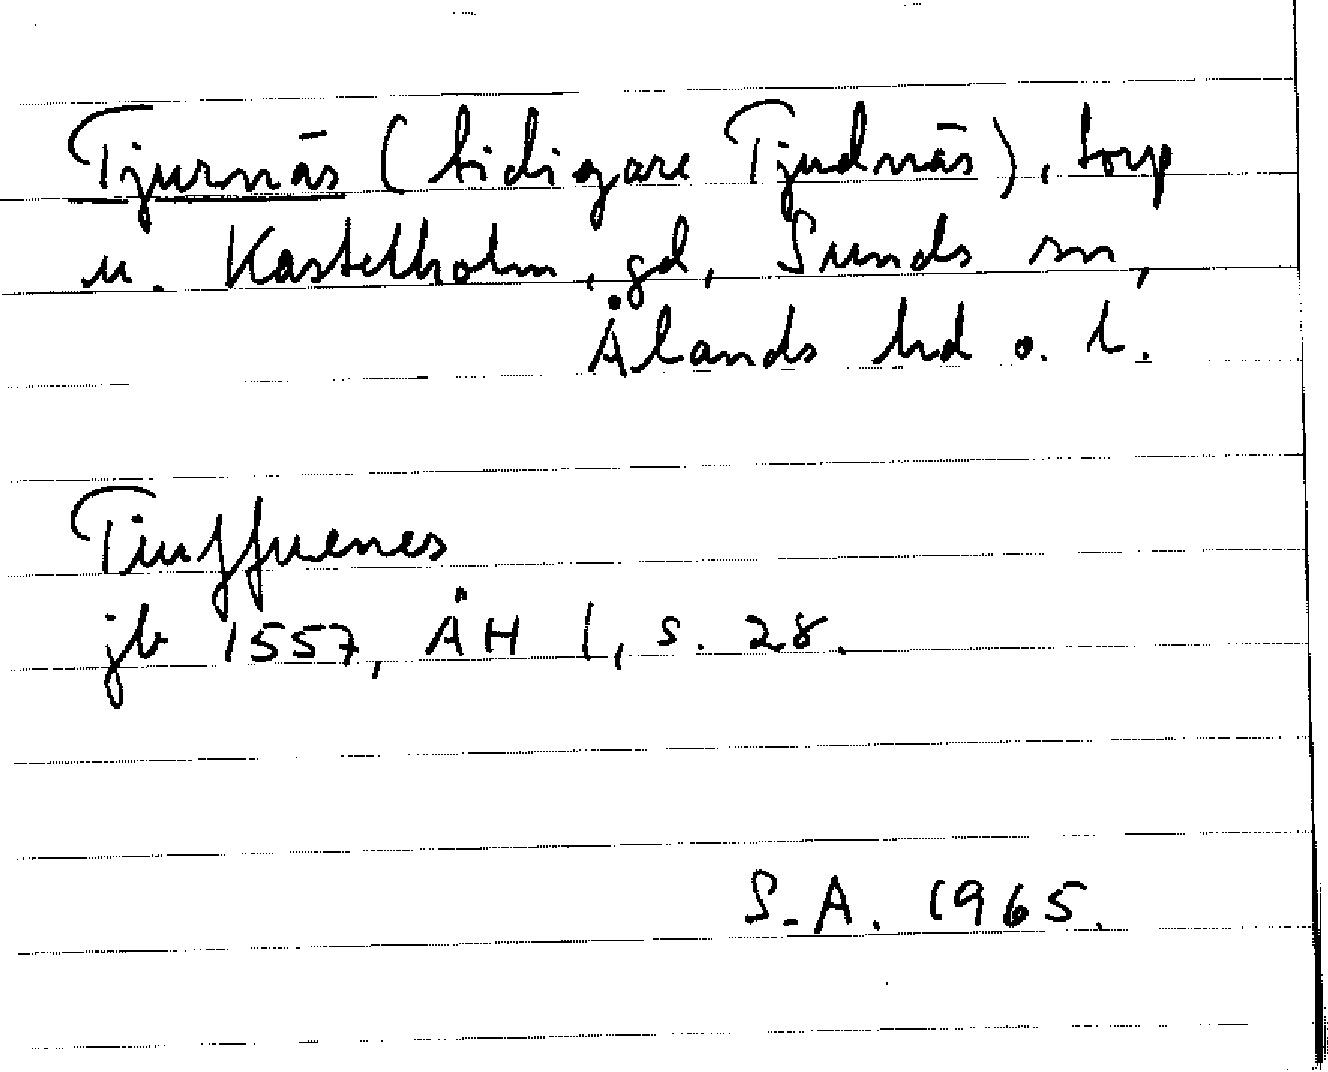 Tjurnäs (tidigare Tjudnäs), torp
u. Kastelholm, gd, Sunds sn,
Ålands hd o. l.
Tiuffuenes
jb 1557, ÅH I, s. 28.
S-A. 1965.